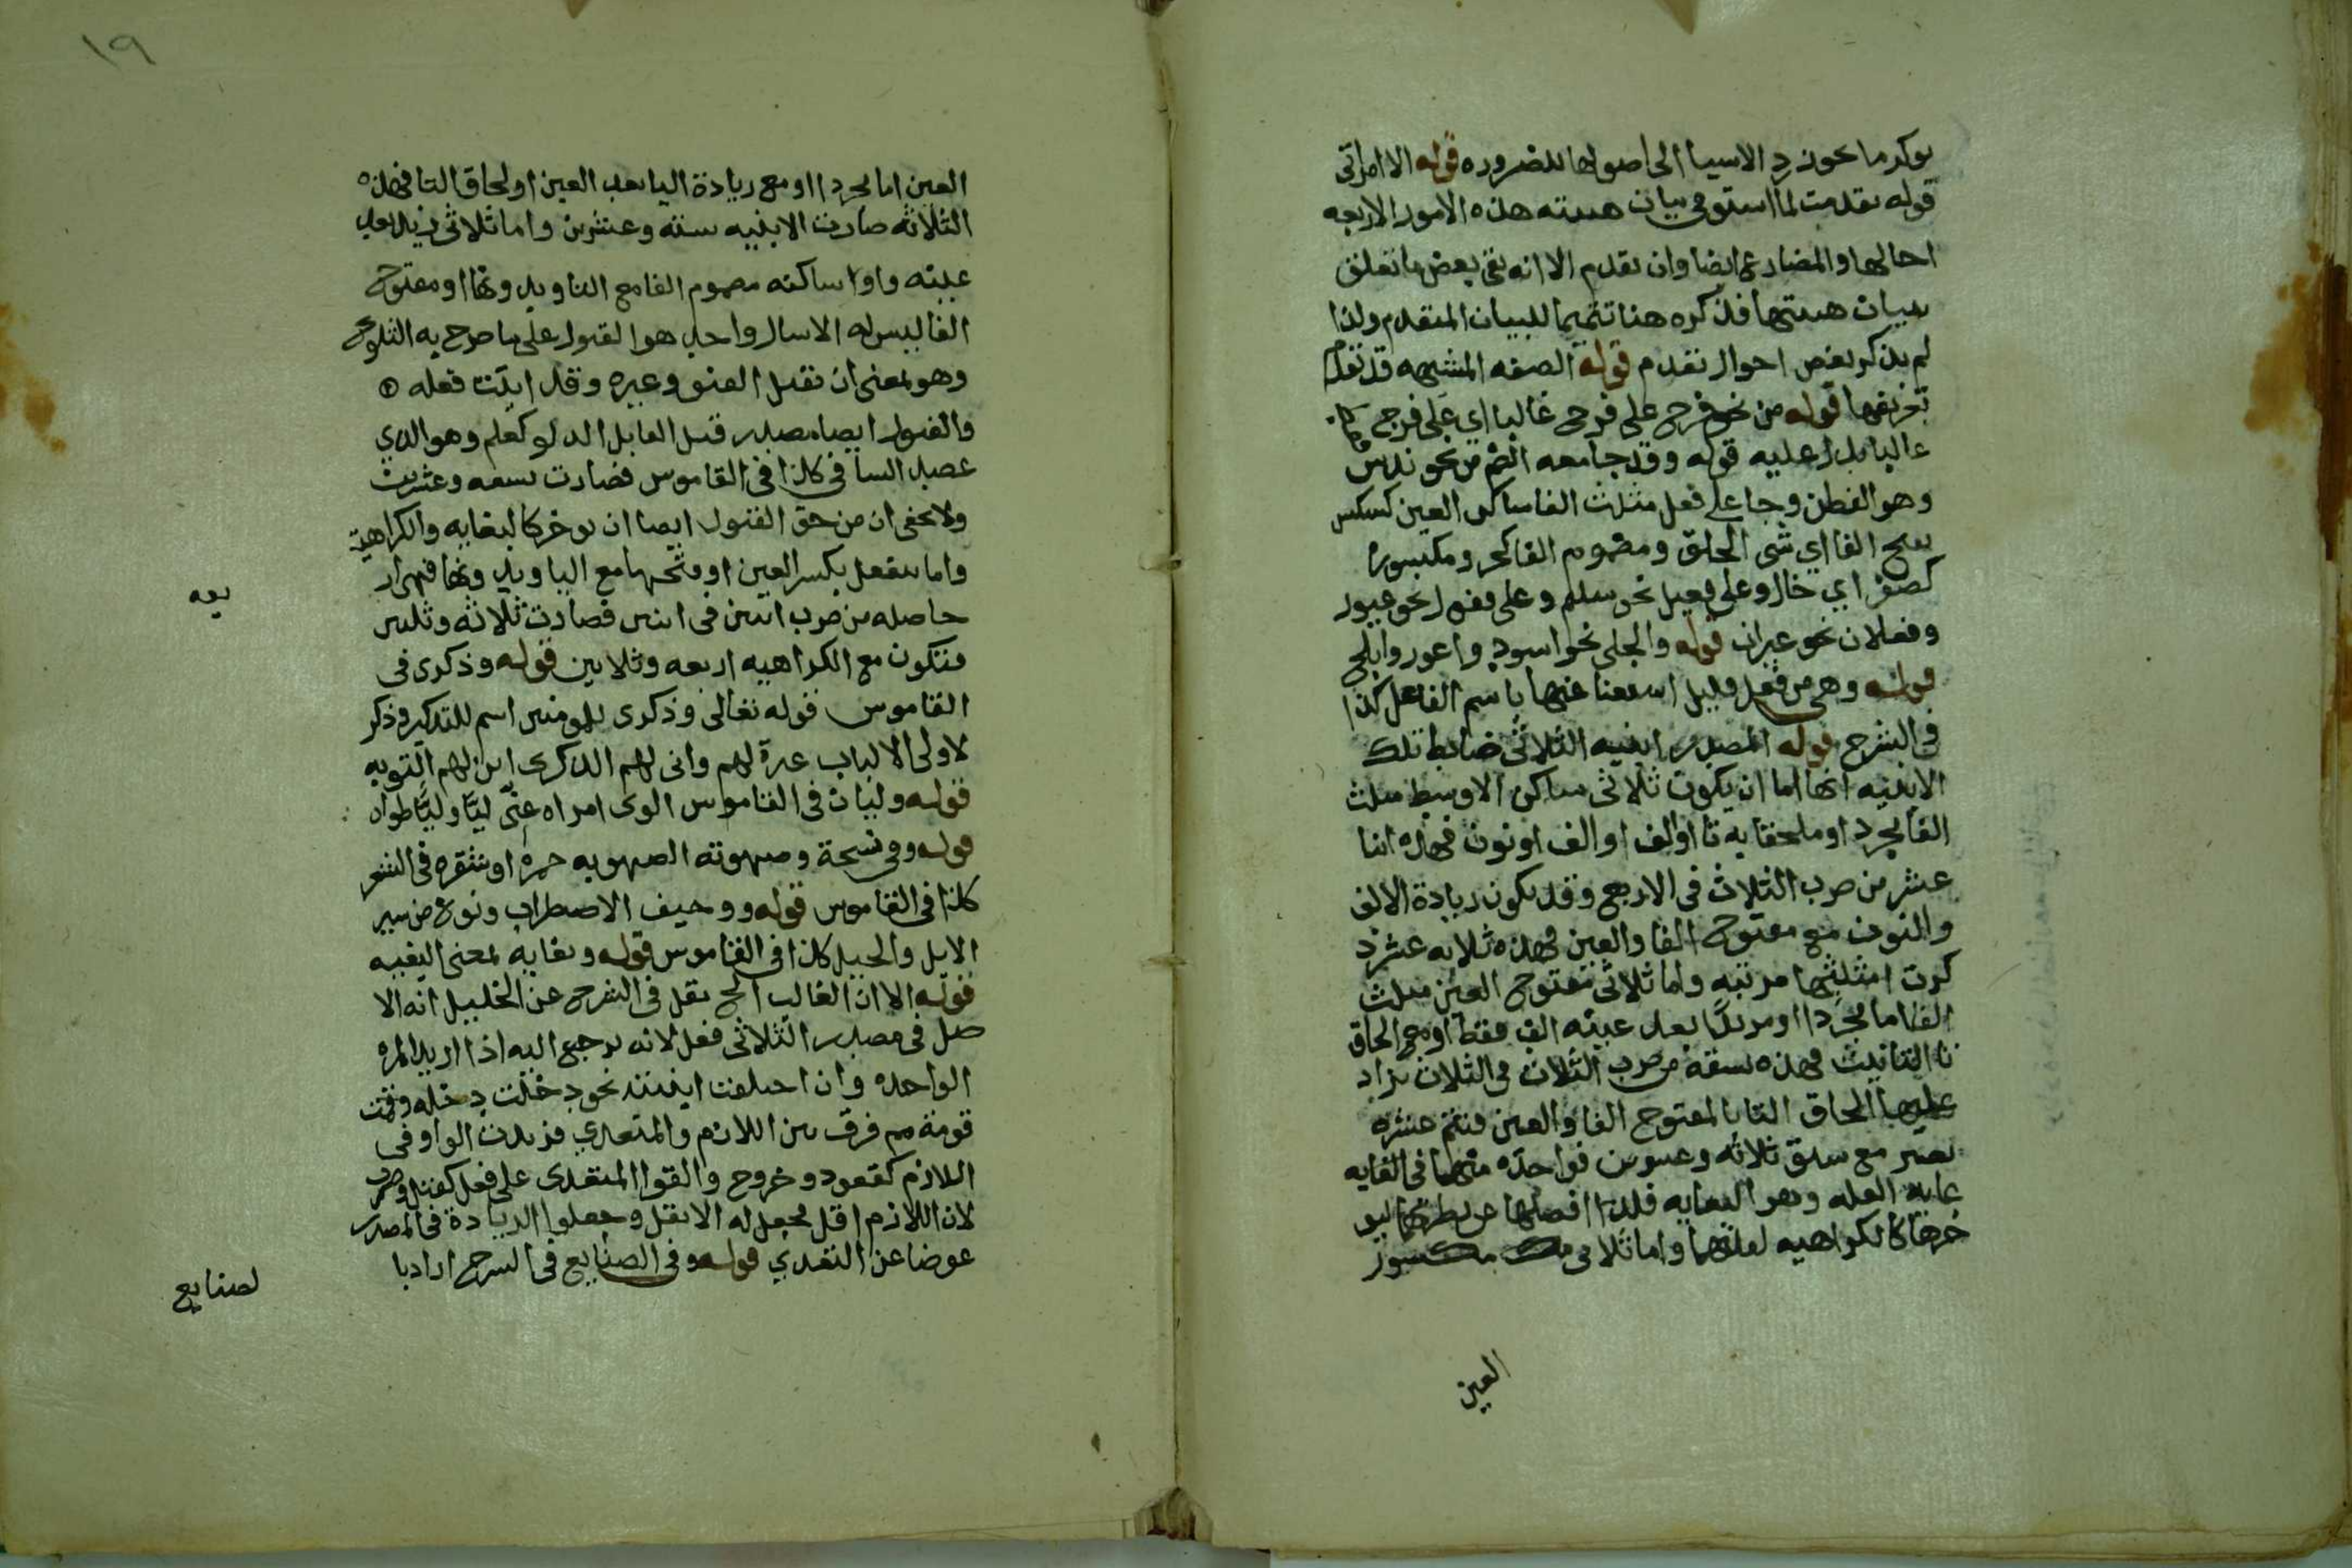 يوكد ما يجوز رد الاسيا الى اصولها للضروره قوله الا امراتى
قوله تقدمت لما استوفى بيان هيئته هذه الامور الاربعه
احالها والمضارع ايضا وان تقدم الا انه بقى بعض ما تعلق
ببيان هيئتها فذكره هنا تتميما للبيان المتقدم ولذا
لم يذكر بعض احوال تقدم قوله الصفه المشبهه قد تقدم
تعريفها قوله من نحو فرح على فرح غالبا اي على فرح وكان
غالبا يدل عليه قوله وقد جا معه الضم من نحو ندس
وهو الفطن وجا على فعل مثلث الفا ساكن العين كشكس
بفتح الفا اي سئ الخلق ومضموم الفا كحر ومكسوره
كصفر اي خال وعلى فعيل نحو سليم وعلى فعول نحو غيور
وفعلان نحو غيران قوله والحلى نحو اسود واعور وابلج
قوله وهى من فعل قليل استغنا عنها باسم الفاعل كذا
فى الشرح قوله المصدر ابنيه الثلاثى ضابط تلك
الابنيه انها اما ان يكون ثلاثى ساكن الاوسط مثلث
الفا مجرد او ملحقا به تا او الف او الف او نون فهذه اثنا
عشر من ضرب الثلاث فى الاربع وقد يكون زيادة الالف
والنون مع مفتوح الفا والعين فهذه ثلاثه عشر ذ
كرت امثلتها مرتبه واما ثلاثى مفتوح العين مثلث
الفا اما مجردا او مزيدا بعد عينه الف فقط او مع الحاق
تا التانيث فهذه تسعة من ضرب الثلاث فى الثلاث يزاد
عليها الحاق التا بالمفتوح الفا والعين فتتم عشره
تصير مع سبق ثلاثه وعشرين فواحده منها فى الغايه
غاية العله وهو البغايه فلذا افصلها عن نظرتها ليو
خرها كالكراهيه لعلتهما واما ثلاثى مكسور
العين
١٩
العين اما مجردا او مع زيادة اليا بعد العين او لحاق التا فهذه
الثلاثه صارت الابنيه سته وعشرين واما ثلاثى زيد بعد
عينه واوا ساكنه مضموم الفا مع التا وبدونها او مفتوح
الفا ليس له الا مثال واحد هو القبول على ما صرح به الثلوج
وهو بمعنى ان تقبل العفو وغيره وقد ابدت فعله
والقبول ايضا مصدر قبل القابل الدلو كعلم وهو الذي
عصبد الساقى كذا فى القاموس فصارت تسعه وعشرين
ولا يخفى ان من حق القبول ايضا ان يوخر كالبغايه والكراهية
واما مفعل بكسر العين او فتحها مع التا وبدونها فهى ار
بعه
حاصله من ضرب اثنين فى اثنين فصارت ثلاثه وثلثين
فتكون مع الكراهيه اربعه وثلاثين قوله وذكرى فى
القاموس قوله تعالى وذكرى للمومنين اسم للتذكير وذكر
لاولى الالباب عبرة لهم وانى لهم الذكرى اين لهم التوبه
قوله وليان فى القاموس الوى امراه عنى ليا وليا طواه
قوله وفى نسخة وصهوته الصهوبه حمرة او شقره فى الشعر
كذا فى القاموس قوله ووجيف الاضطراب ونوع من سير
الابل والخيل كذا فى القاموس قوله وبغايه بمعنى البغيه
قوله الا ان الغالب الخ نقل فى الشرح عن الخليل انه الا
صل فى مصدر الثلاثى فعل لانه يرجع اليه اذا اريد المره
الواحده وان اختلفت ابنيته نحو دخلت دخله وقمت
قومة ثم فرق بين اللازم والمتعدي فزيدت الواو فى
اللازم كقعود وخروج والقوا المتعدى على فعل كقتل وضرب
لان اللازم اقل فجعل له الاثقل وجعلوا الزيادة فى المصدر
عوضا عن التعدي قوله وفى الصنايع فى الشرح اراد با
لصنايع